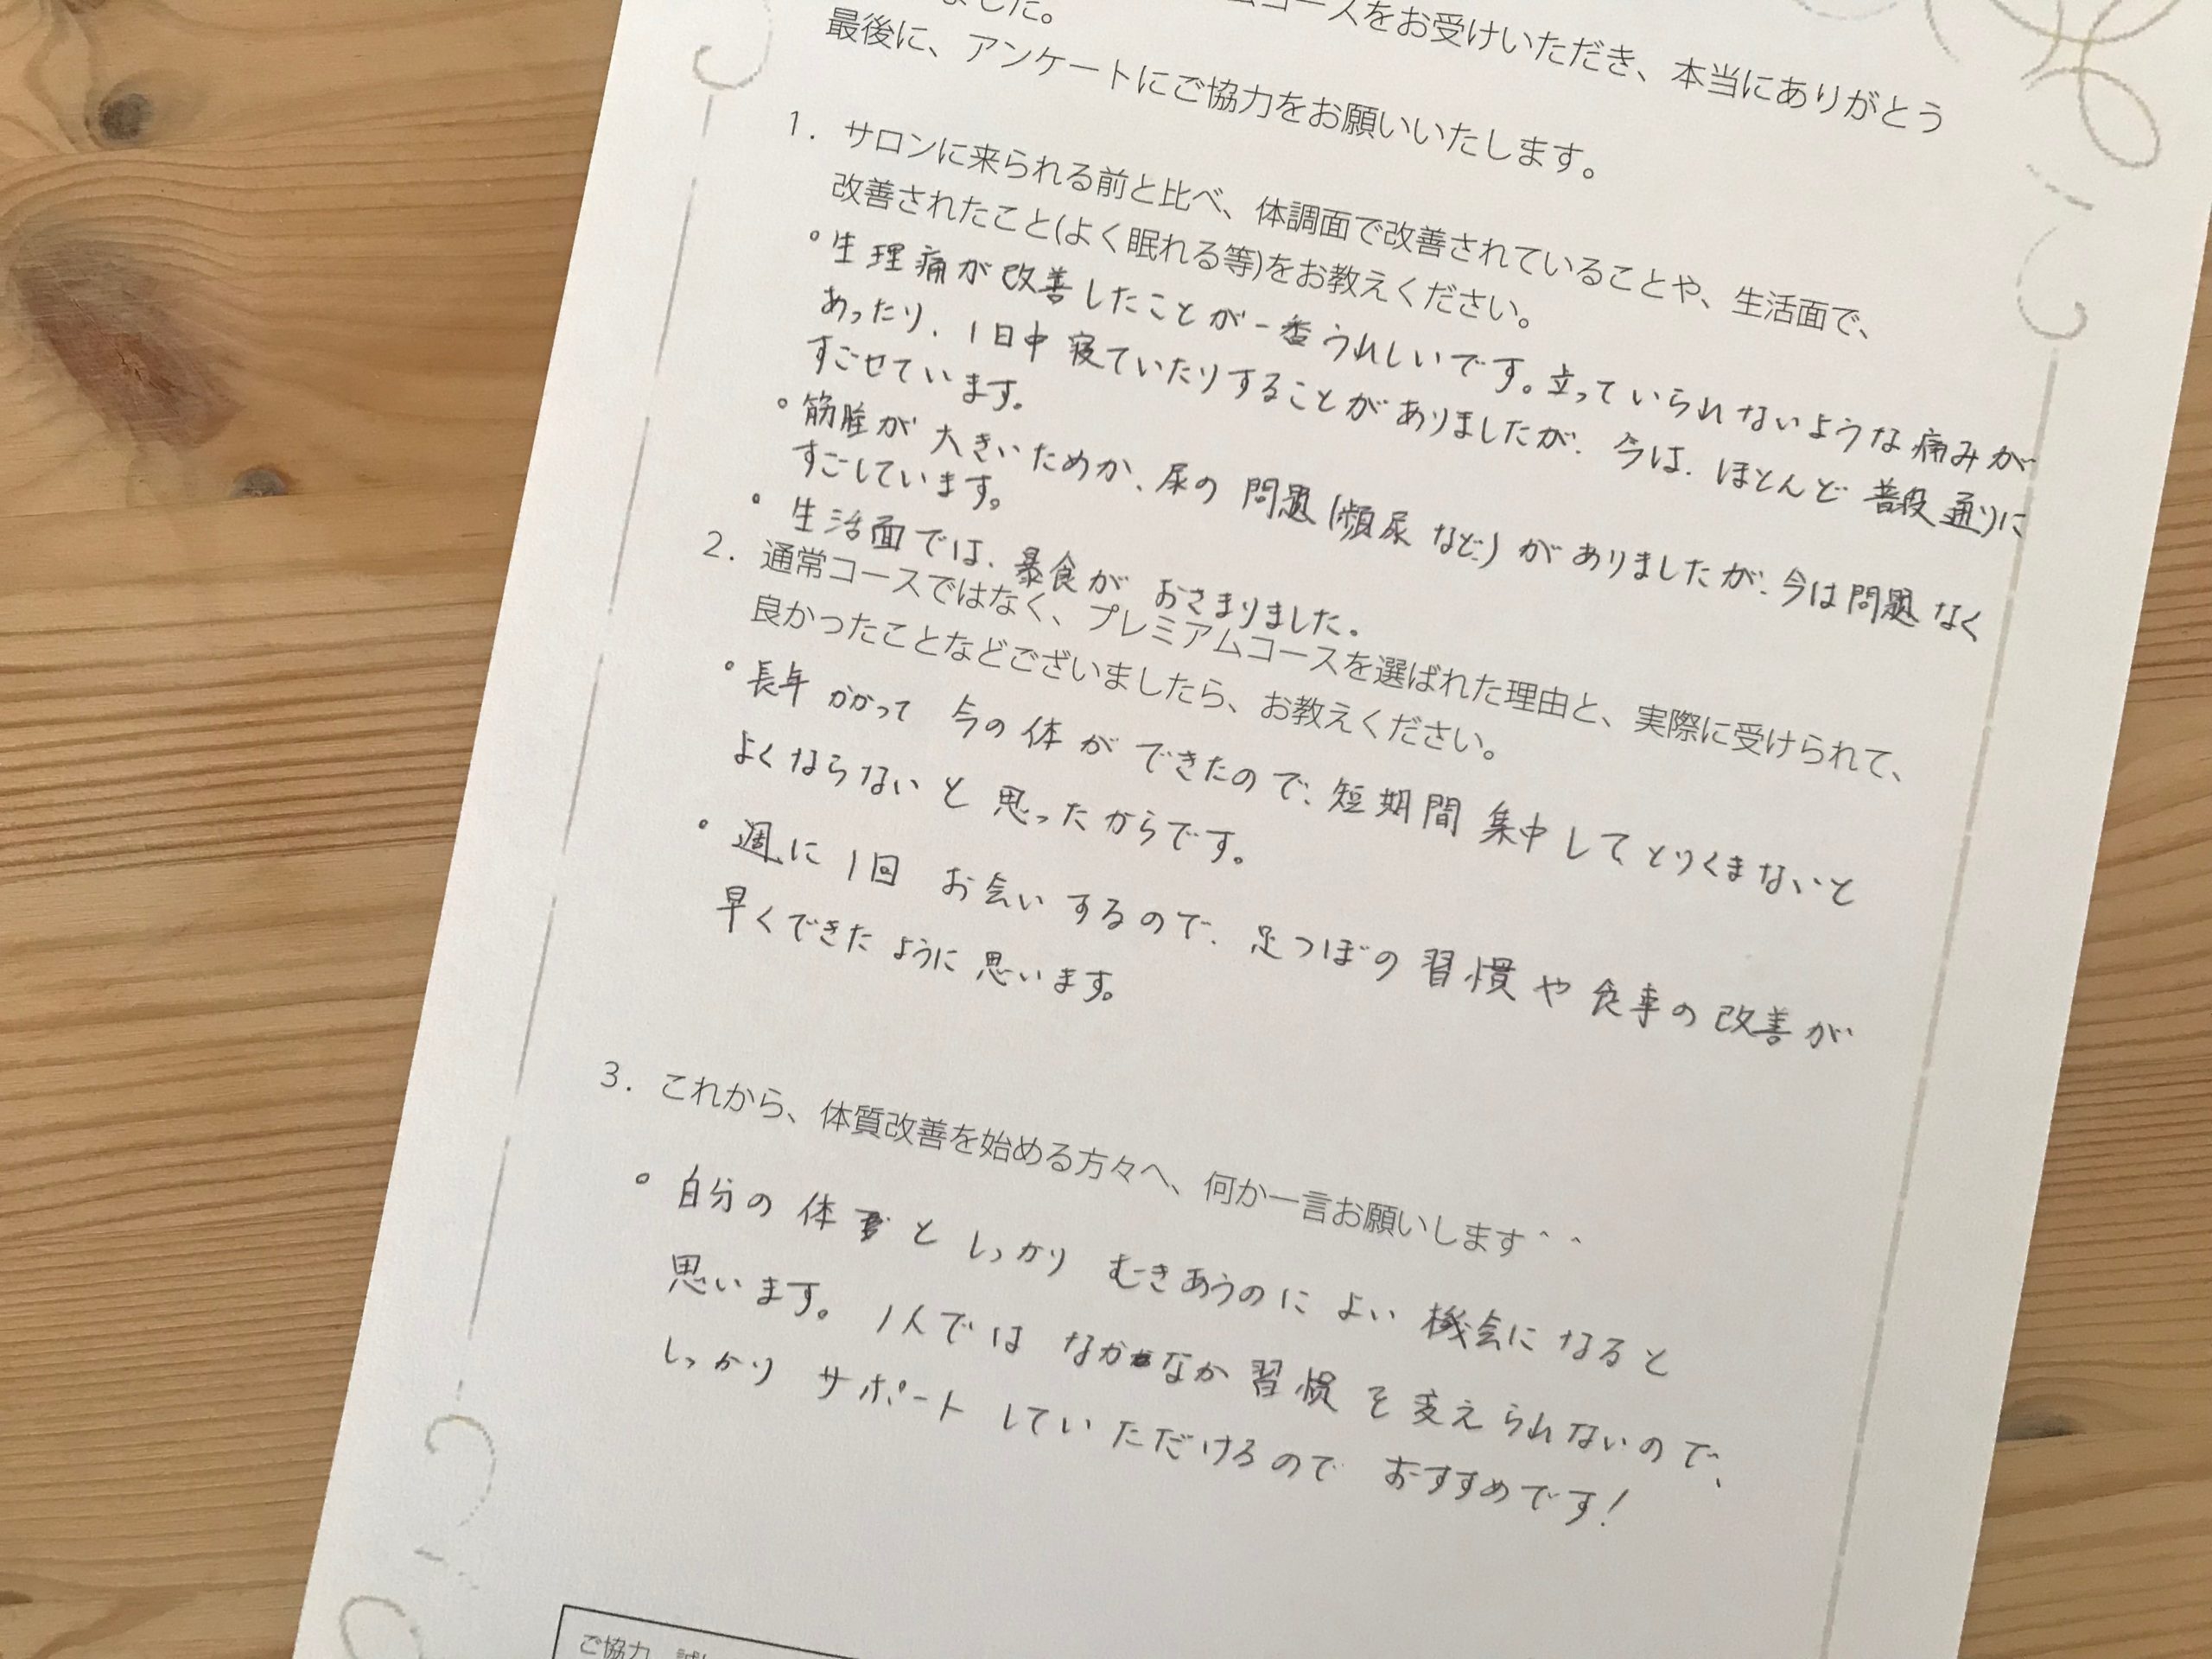 ました。
ムコースをお受けいただき、本当にありがとう
最後に、アンケートにご協力をお願いいたします。
1. サロンに来られる前と比べ、体調面で改善されていることや、生活面で、
改善されたこと(よく眠れる等)をお教えください。
・生理痛が改善したことが一番うれしいです。立っていられないような痛みが
あったり、1日中寝ていたりすることがありましたが、今は、ほとんど普段通りに
すごせています。
・筋腫が大きいためか、尿の問題(頻尿など)がありましたが、今は問題なく
すごしています。
・生活面では、暴食がおさまりました。
2. 通常コースではなく、プレミアムコースを選ばれた理由と、実際に受けられて、
良かったことなどございましたら、お教えください。
・長年かかって今の体ができたので、短期間集中してとりくまないと
よくならないと思ったからです。
・週に1回お会いするので、足つぼの習慣や食事の改善が
早くできたように思います。
3. これから、体質改善を始める方々へ、何か一言お願いします^ ^
・自分の体としっかりむきあうのによい機会になると
思います。1人ではなかなか習慣を変えられないので、
しっかりサポートしていただけるのでおすすめです!
ご協力